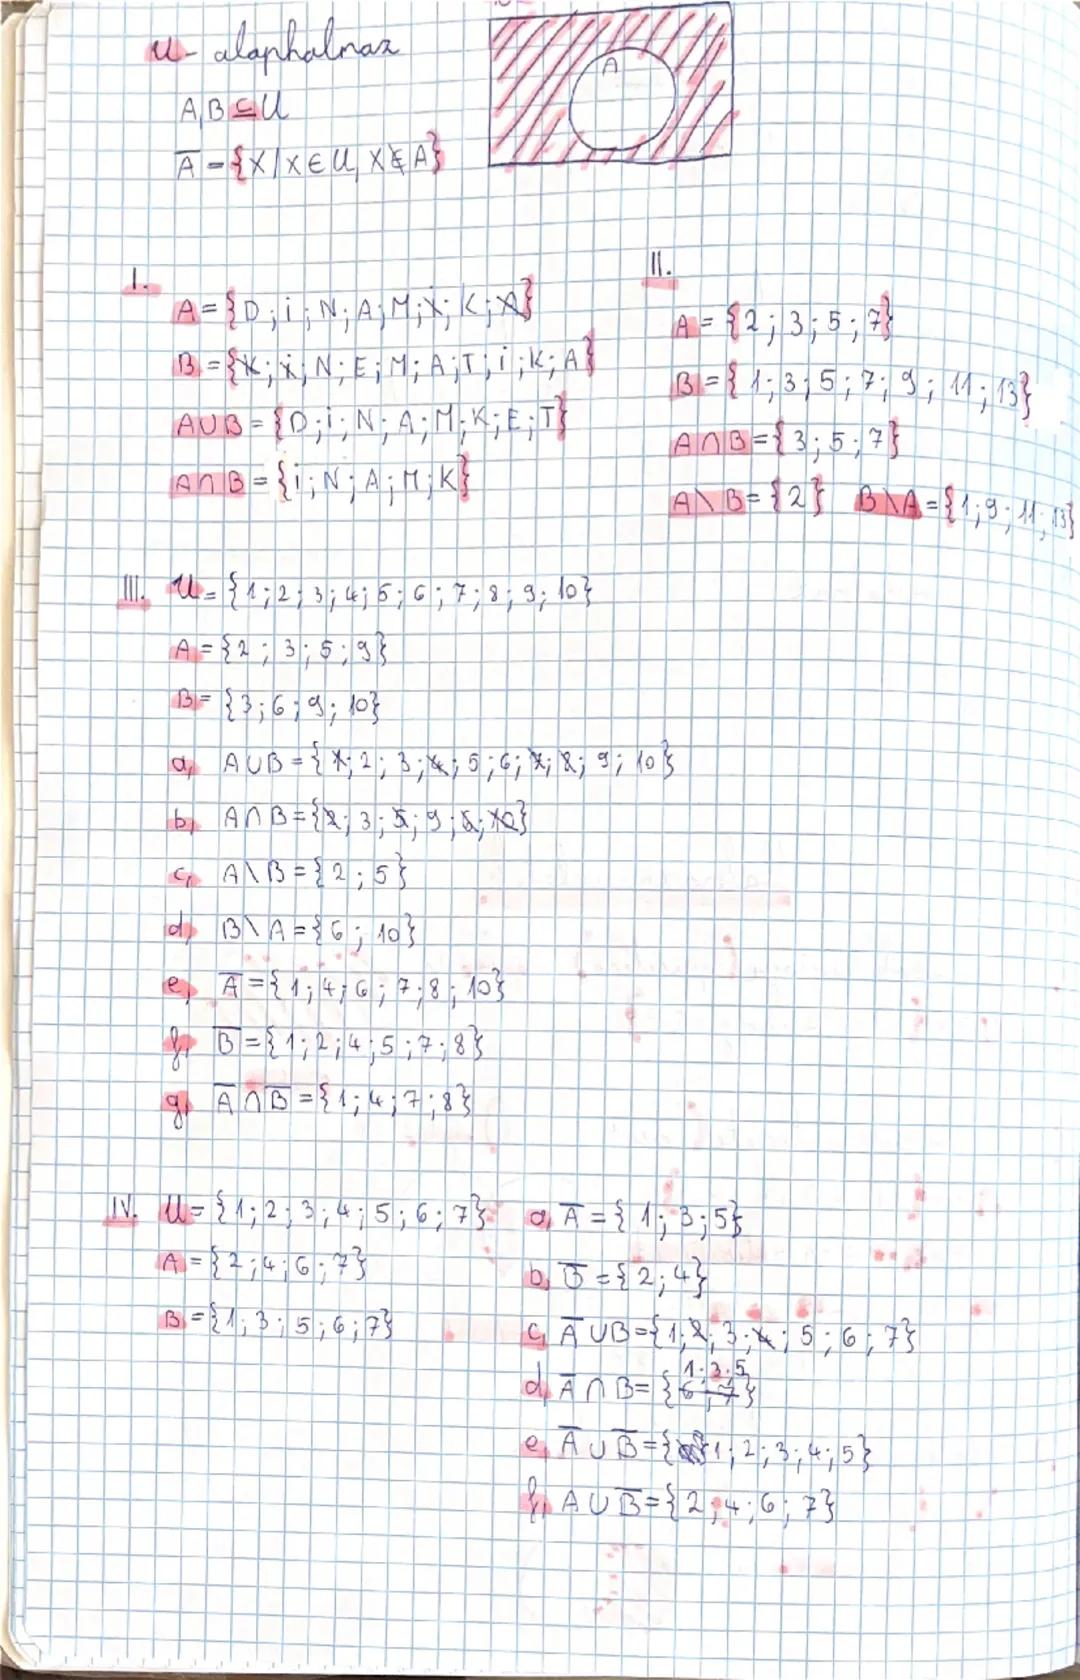 U - alaphalmaz
A
A,B ⊆ U
A̅ = {X | X ∈ U, X ∉ A}
I.
A = {D; i; N; A; M; i; K; A}
B = {K; i; N; E; M; A; T; i; K; A}
A∪B = {D; i; N; A; M; K; E; T}
A∩B = {i; N; A; M; K}
II.
A = {2; 3; 5; 7}
B = {1; 3; 5; 7; 9; 11; 13}
A∩B = {3; 5; 7}
A\B = {2} B\A = {1; 9; 11; 13}
III. U = {1; 2; 3; 4; 5; 6; 7; 8; 9; 10}
A = {2; 3; 5; 9}
B = {3; 6; 9; 10}
a, A∪B = {1; 2; 3; 4; 5; 6; 7; 8; 9; 10}
b, A∩B = {2; 3; 5; 9; 6; 10}
c, A\B = {2; 5}
d, B\A = {6; 10}
e, A̅ = {1; 4; 6; 7; 8; 10}
f, B̅ = {1; 2; 4; 5; 7; 8}
g, A̅ ∩ B̅ = {1; 4; 7; 8}
IV. U = {1; 2; 3; 4; 5; 6; 7}
A = {2; 4; 6; 7}
B = {1; 3; 5; 6; 7}
a, A̅ = {1; 3; 5}
b, B̅ = {2; 4}
c, A̅ ∪ B = {1; 2; 3; 4; 5; 6; 7}
1; 3; 5
d, A̅ ∩ B = {6; 7}
e, A̅ ∪ B̅ = {1; 2; 3; 4; 5}
f, A ∪ B̅ = {2; 4; 6; 7}